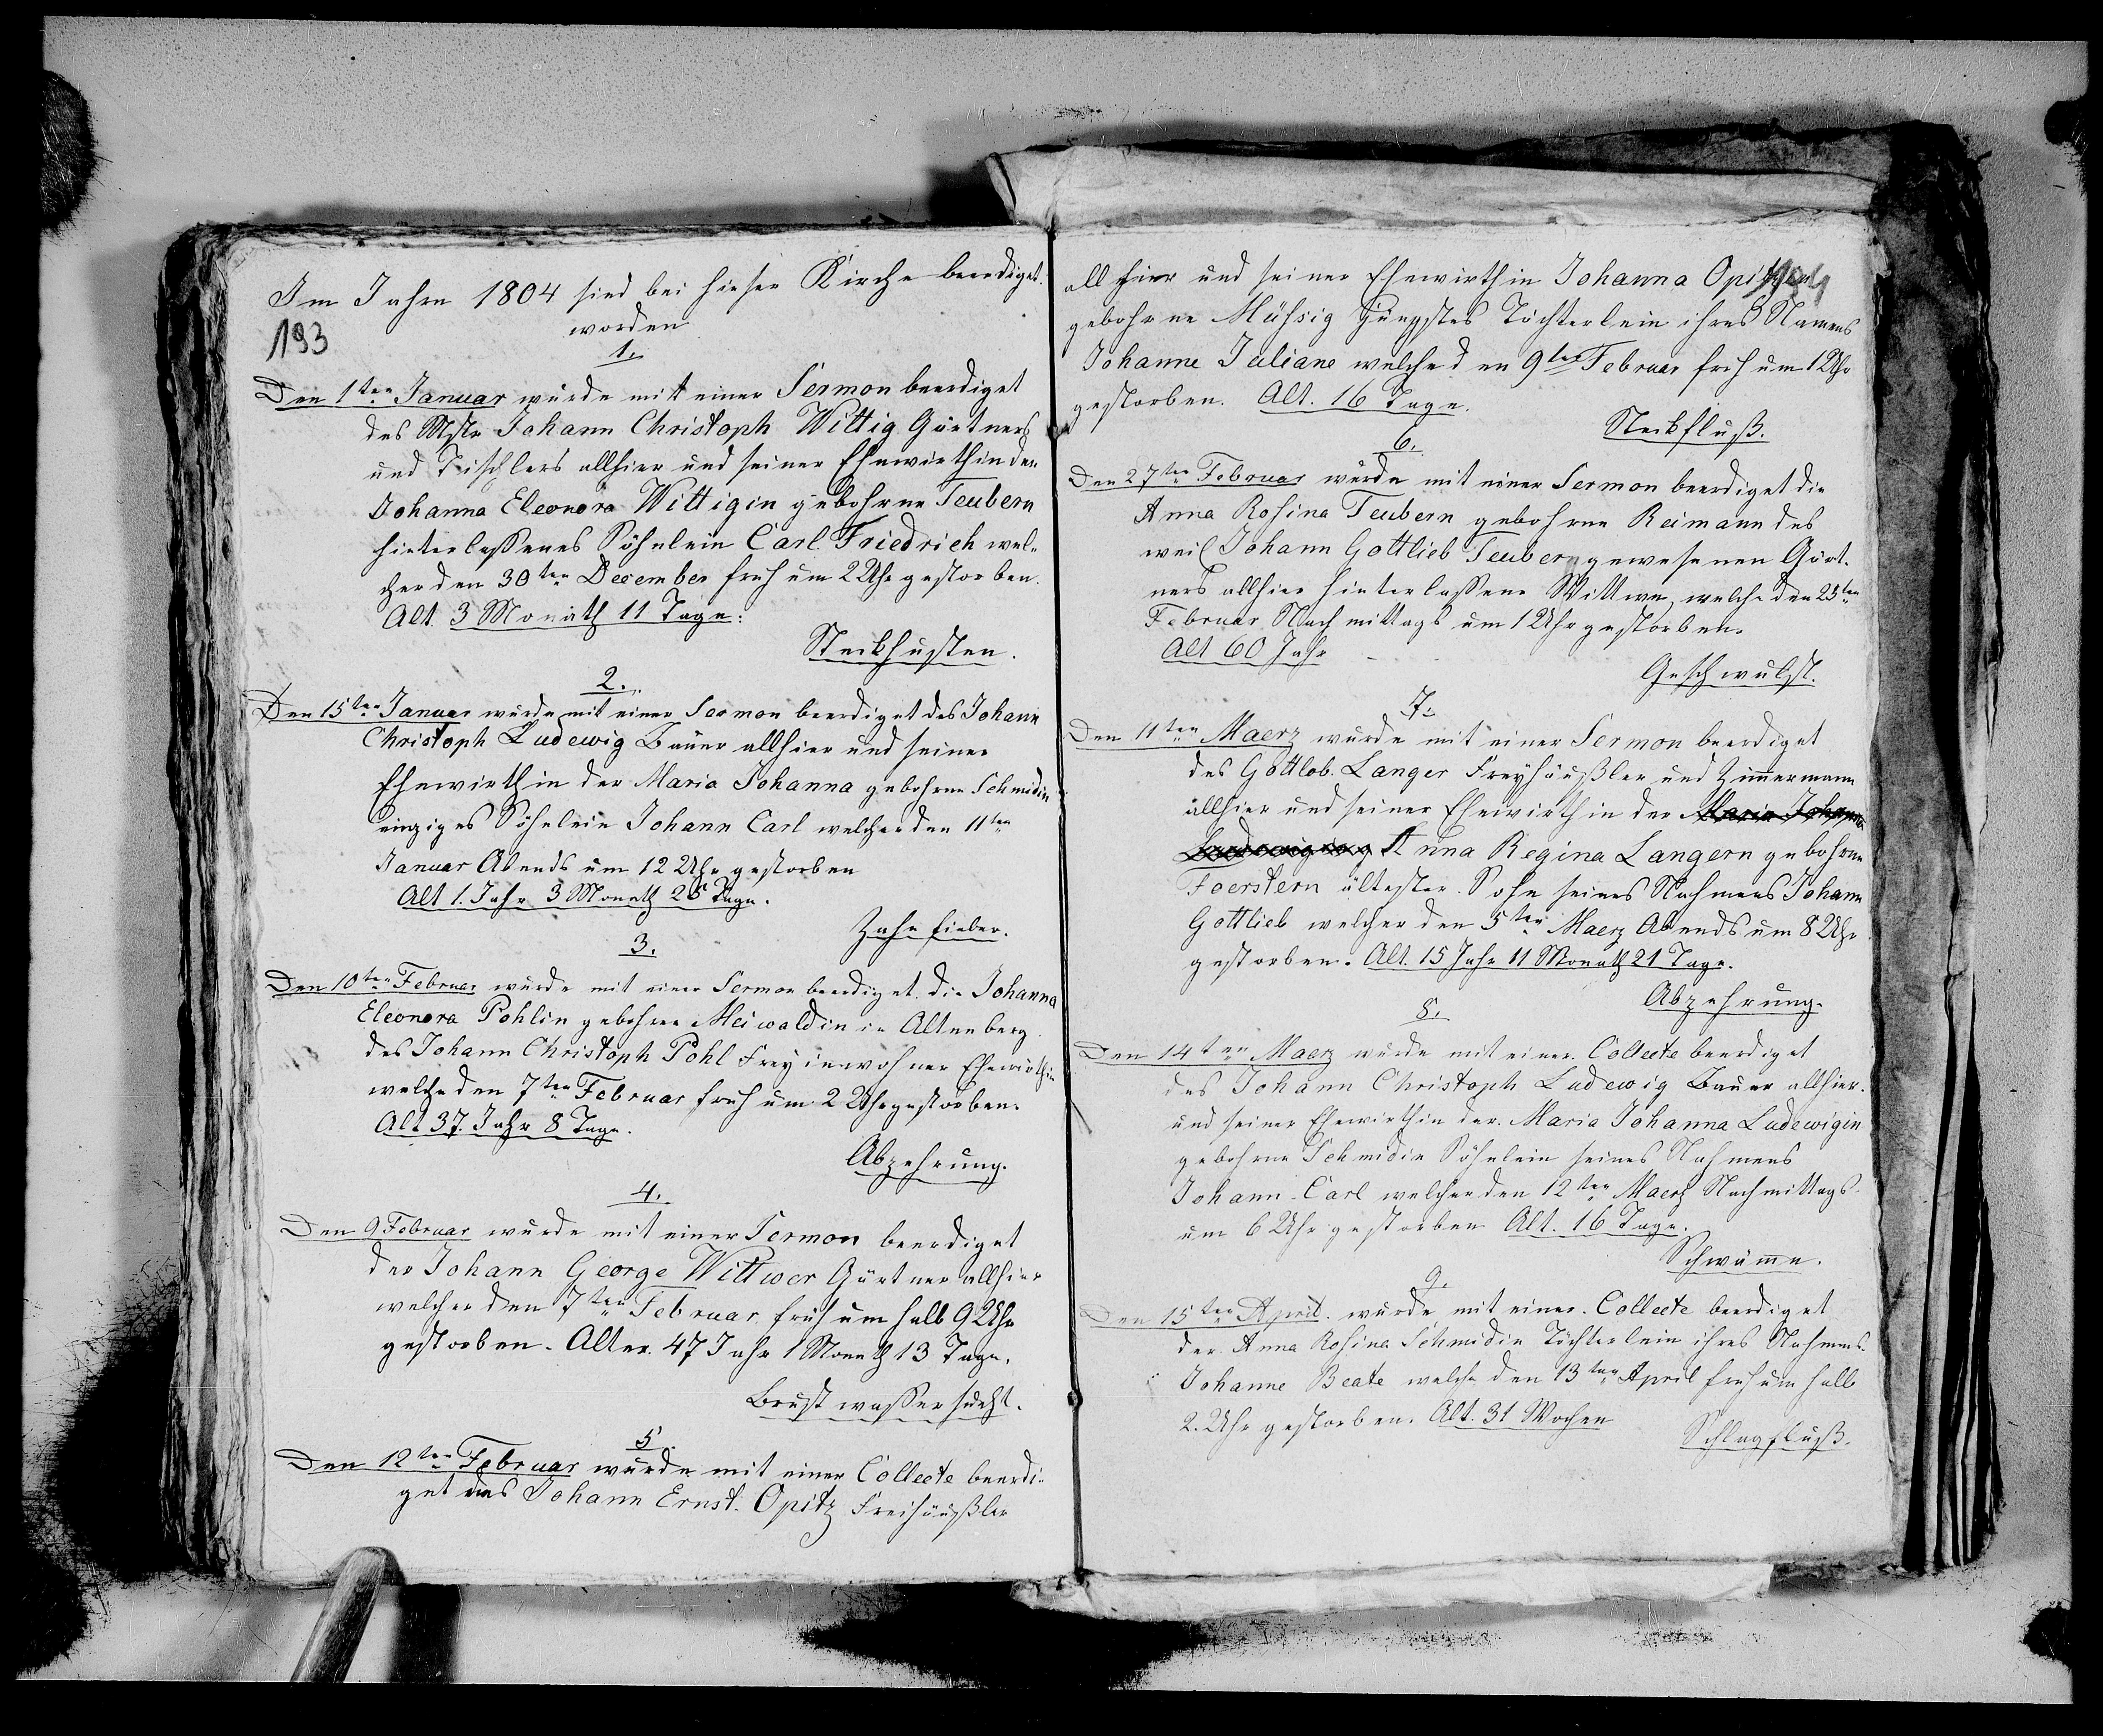 Im Jahre 1804 sind bei hieser Kirche beerdiget
worden
193
1.
Den 1ten Januar wurde mit einer Sermon beerdiget
des Mstr Johann Christoph Wittig Gärtners
und Tischlers allhier und seiner Ehewirthin der
Johanna Eleonora Wittigin gebohrne Teubern
hinterlaßenes Söhnlein Carl Friedrich wel-
cher den 30ten December früh um 2 Uhr gestorben.
Alt. 3 Monath 11 Tage.
Steckhusten.
2.
Den 15ten Januar wurde mit einer Sermon beerdiget des Johann
Christoph Ludewig Bauer allhier und seiner
Ehewirthin der Maria Johanna gebohrne Schmidin
einziges Söhnlein Johann Carl welcher den 11ten
Januar Abends um 12 Uhr gestorben
Alt 1. Jahr 3 Monath 25 Tage.
Zahnfieber.
3.
Den 10ten Februar wurde mit einer Sermon beerdiget die Johanna
Eleonora Pohlin gebohrne Meiwaldin in Altenberg
des Johann Christoph Pohl Freyinwohner Ehewirthin
welche den 7ten Februar früh um 2 Uhr gestorben.
Alt 37. Jahr 8 Tage.
Abzehrung.
4.
Den 9 Februar wurde mit einer Sermon beerdiget
der Johann George Wittwer Gärtner allhier
welcher den 7ten Februar früh um halb 9 Uhr
gestorben. Alter. 47 Jahr 1 Monath 13 Tage.
Brustwaßersucht.
5
Den 12ten Februar wurde mit einer Collecte beerdi-
get des Johann Ernst. Opitz Freihäußler
allhier und seiner Ehewirthin Johanna
gebohrne Müßsig jüngstes Töchterlein ihres Namens
Johanne Juliane welche den 9ten Februar früh um 1 Uhr
gestorben. Alt. 16 Tage.
Steckfluß.
6.
Den 27ten Februar wurde mit einer Sermon beerdiget die
Anna Rosina Teubern gebohrne Reimann des
weil Johann Gottlieb Teubern gewesenen Gärt-
ners allhier hinterlaßene Wittwe, welche den 25ten
Februar Nachmittags um 1 Uhr gestorben.
Alt 60 Jahr
Geschwulst.
7.
Den 11ten Maerz wurde mit einer Sermon beerdiget
des Gottlob. Langer Freyhäußler und Zimmermann
allhier und seiner Ehewirthin der Maria Johanna
Ludewigin Anna Regina Langern gebohrne
Foerstern ältester Sohn seines Nahmens Johann
Gottlieb welcher den 5ten Maerz Abends um 8 Uhr
gestorben. Alt. 15 Jahr 11 Monath 21 Tage.
Abzehrung.
8.
Den 14ten Maerz wurde mit einer Collecte beerdiget
des Johann Christoph Ludewig Bauer allhier.
und seiner Ehewirthin der Maria Johanna Ludewigin
gebohrne Schmidin Söhnlein seines Nahmens
Johann Carl welcher den 12ten Maerz Nachmittags
um 6 Uhr gestorben Alt. 16 Tage.
Schwämme.
9.
Den 15ten April wurde mit einer Collecte beerdiget
der Anna Rosina Schmidin Töchterlein ihres Nahmens
Johanne Beate welche den 13ten April früh um halb
2. Uhr gestorben. Alt. 31 Wochen
Schlagfluß.